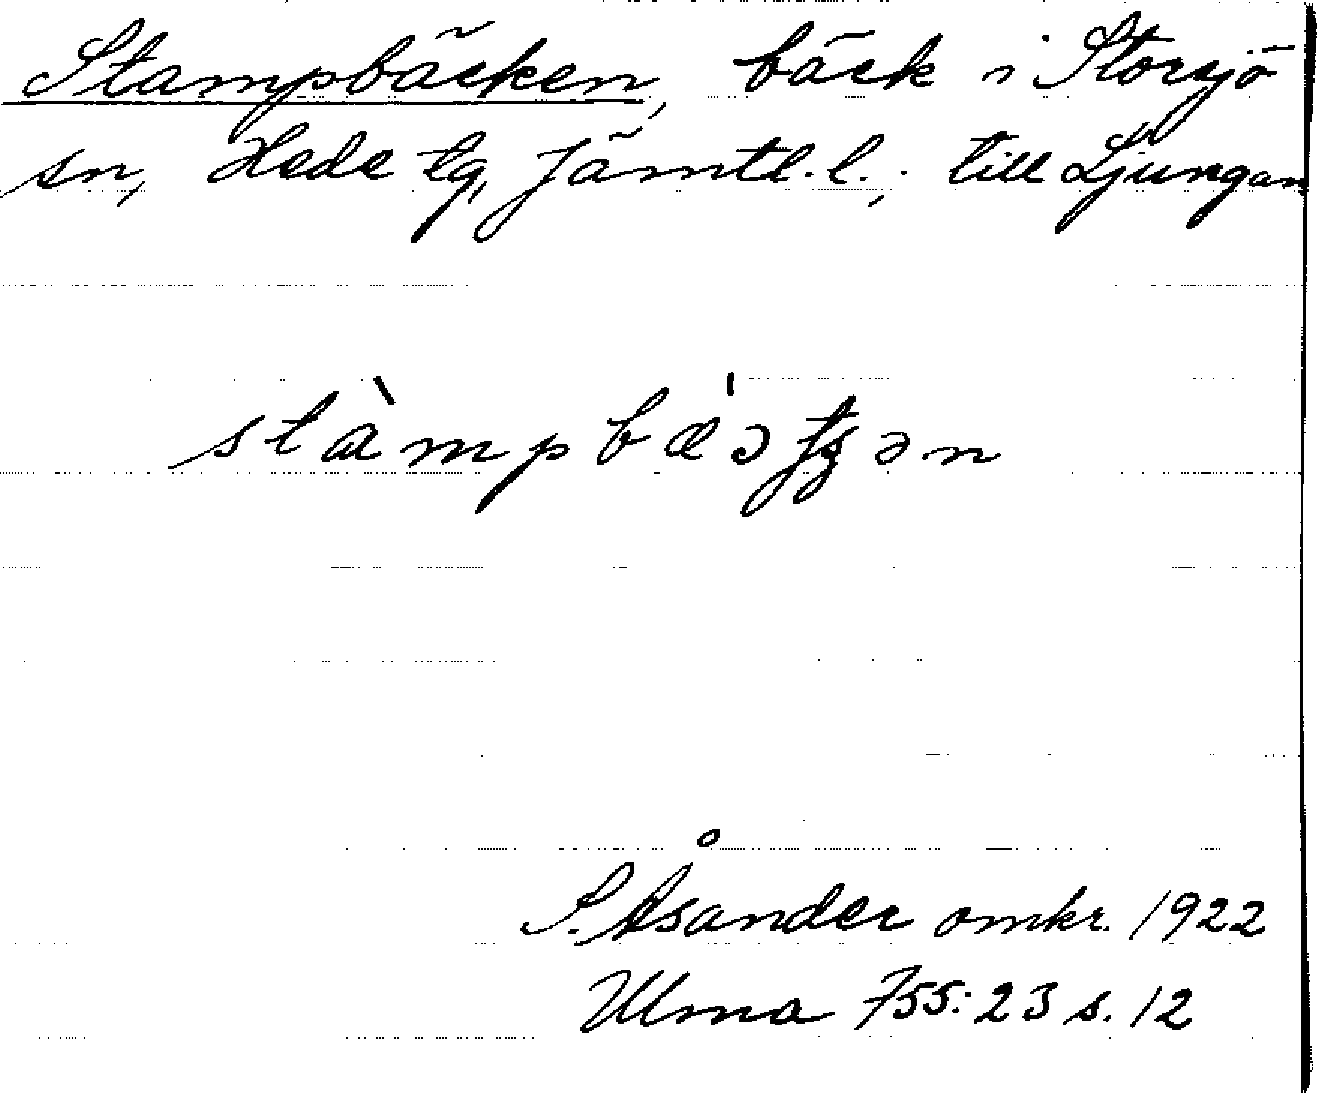 Stampbäcken, bäck i Storsjö
sn, Hede tg, Jämtl. l.; till Ljungan
S. Åsander omkr. 1922
Ulma 755:23 s. 12